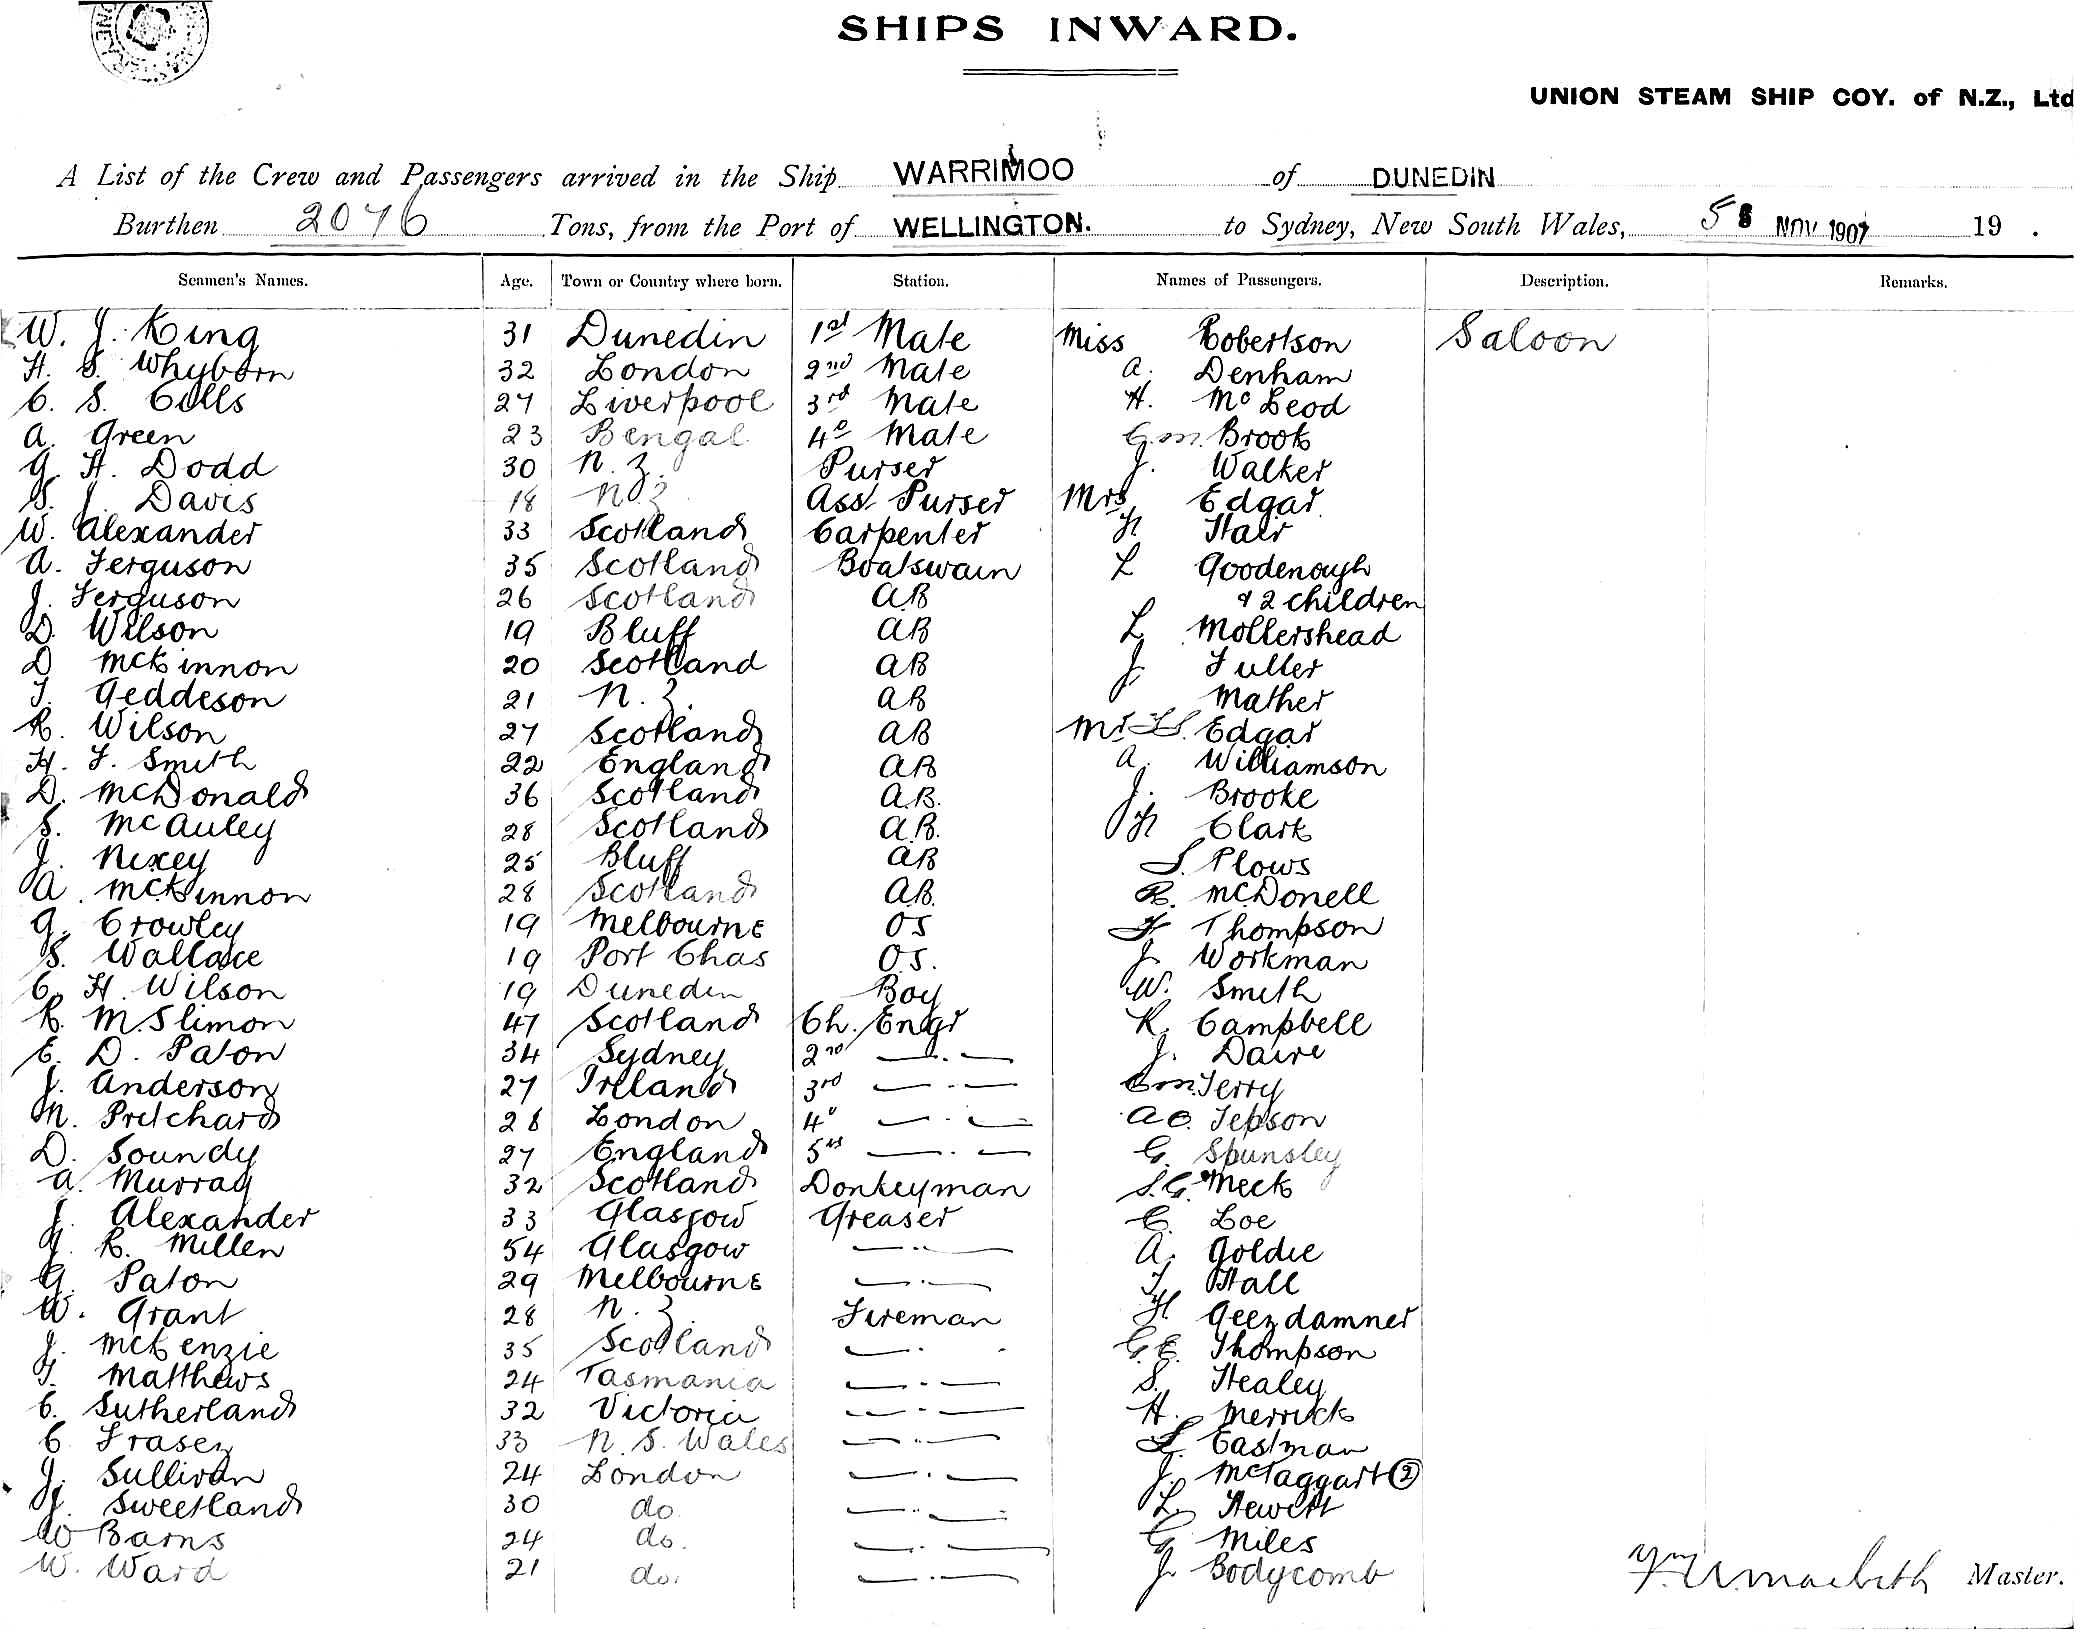 SHIPS INWARD.
UNION STEAM SHIP COY. of N.Z., Ltd
A List of the Crew and Passengers arrived in the Ship WARRIMOO of DUNEDIN
Burthen 2076 Tons, from the Port of WELLINGTON. to Sydney, New South Wales, 5 NOV 1907 19 .
Seamen's Names. Age. Town or Country where born. Station. Names of Passengers. Description. Remarks.
W. J. King 31 Dunedin 1st Mate Miss Robertson Saloon
H. S. Whyborn 32 London 2nd Mate A. Denham
C. S. Colls 27 Liverpool 3rd Mate H. McLeod
A. Green 23 Bengal 4o Mate G.M. Brook
G. H. Dodd 30 N.Z. Purser J. Walker
S. J. Davis 18 N.Z Asst Purser Mrs Edgar
W. Alexander 33 Scotland Carpenter H Hair
A. Ferguson 35 Scotland Boatswain L Goodenough
J. Ferguson 26 Scotland AB & 2 children
D. Wilson 19 Bluff AB L Mollershead
D McKinnon 20 Scotland AB J. Fuller
T. Geddeson 21 N.Z. AB Mather
R. Wilson 27 Scotland AB Mr Edgar
H. F. Smith 22 England AB A. Williamson
D. McDonald 36 Scotland A.B. J. Brooke
S. McAuley 28 Scotland A.B. H Clark
J. Nixey 25 Bluff AB S. Plows
A. McKinnon 28 Scotland A.B. R. McDonell
G. Crowley 19 Melbourne OS F. Thompson
S. Wallace 19 Port Chas O.S. J. Workman
C. H. Wilson 19 Dunedin Boy W. Smith
R. M. Slimon 47 Scotland Ch. Engr R. Campbell
E. D. Paton 34 Sydney 2nd —.— J. Daire
J. Anderson 27 Ireland 3rd —.— Terry
M. Pritchard 28 London 4o —.— A C. Jepson
D. Soundy 27 England 5th —.— G. Spunsley
A. Murray 32 Scotland Donkeyman S.G. Meek
J. Alexander 33 Glasgow Greaser C. Loe
J. R. Millen 54 Glasgow —..— A. Goldie
G. Paton 29 Melbourne —.— T Hall
W. Grant 28 N.Z. Fireman H Geezdamner
J. McKenzie 35 Scotland —. - G.E. Thompson
T. Matthews 24 Tasmania —.— S. Healey
C. Sutherland 32 Victoria —.— H. Merrick
C. Fraser 33 N.S. Wales —.— L. Eastman
J. Sullivan 24 London —.— J. McTaggart (2)
J. Sweetland 30 do. —.— L Hewett
W Barns 24 do. —.— G. Miles
W. Ward 21 do. —.— J Bodycomb
Macbeth Master.